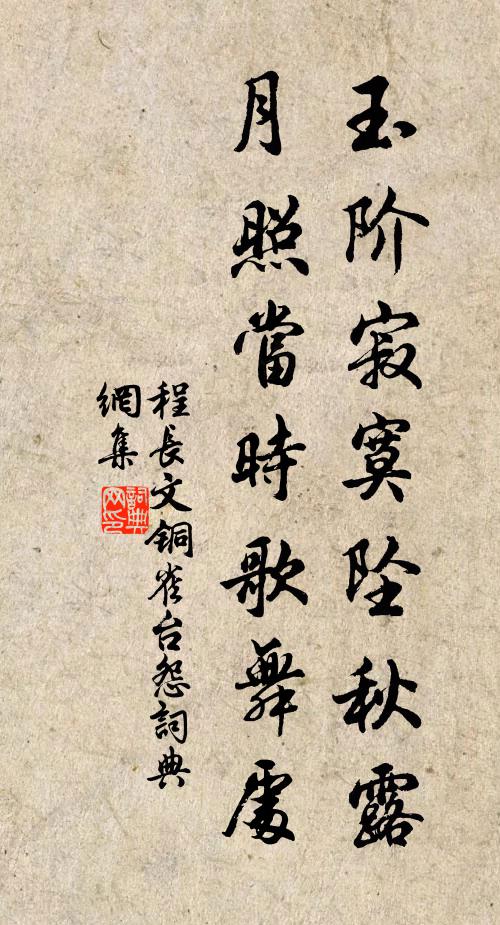 玉阶寂寞坠秋露
月照當時歌舞處
程長文铜雀台怨詞典
網集
詞典
网印